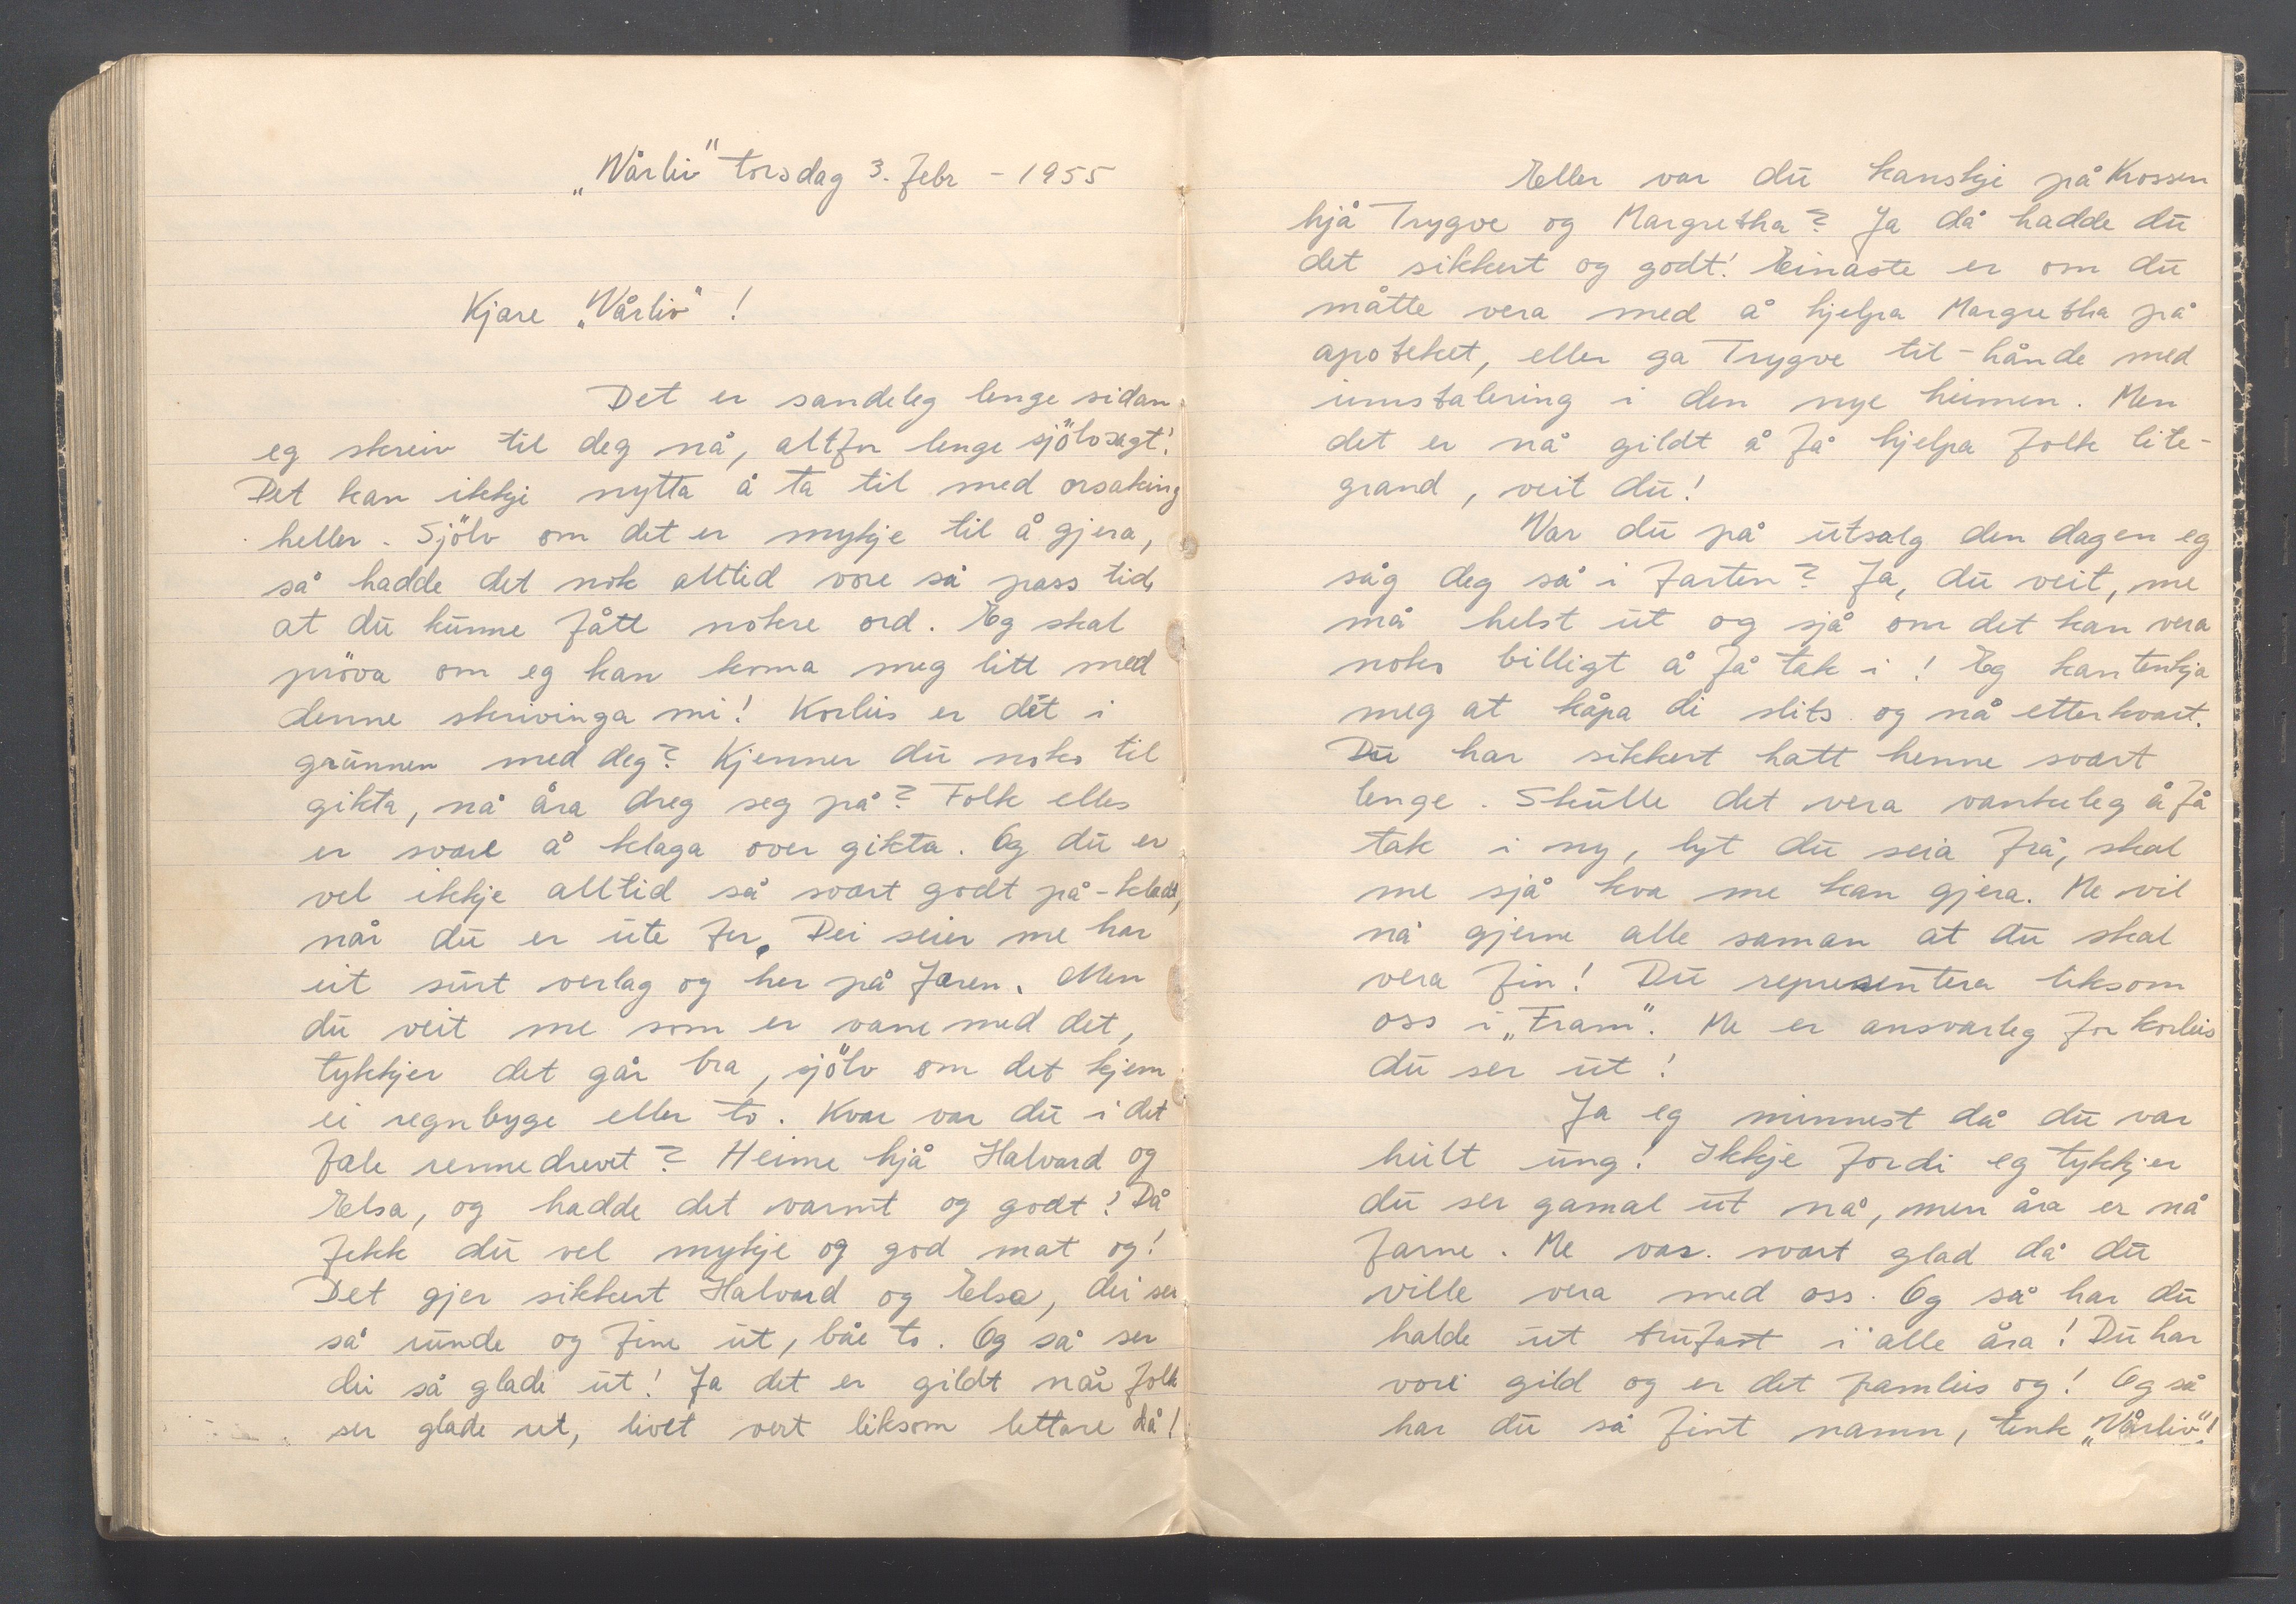 „Vårliv" torsdag 3. febr - 1955
Kjære „Vårliv" !
Det er sandeleg lenge sidan
eg skreiv til deg nå, altfor lenge sjölvsagt!
Det kan ikkje nytta å ta til med orsaking
heller. Sjölv om det er mykje til å gjera,
så hadde det nok alltid vore så pass tid,
at du kunne fått nokre ord. Eg skal
pröva om eg kan koma meg litt med
denne skrivinga mi! Korleis er det i
grunnen med deg? Kjenner du noko til
gikta, nå åra dreg seg på? Folk elles
er svært å klaga over gikta. Og du er
vel ikkje alltid så svært godt på-kledd,
når du er ute fer. Dei seier me har
eit surt verlag og her på Jæren. Men
du veit me som er vane med det,
tykkjer det går bra, sjölv om det kjem
ei regnbyge eller to. Kvar var du i det
fæle rennedrevet? Heime hjå Halvard og
Elsa, og hadde det varmt og godt? Då
fekk du vel mykje og god mat og!
Det gjer sikkert Halvard og Elsa, dei ser
så runde og fine ut, båe to. Og så ser
dei så glade ut! Ja det er gildt når folk
ser glade ut, livet vert liksom lettare då!
Eller var du kanskje på Krossen
hjå Trygve og Margretha? Ja då hadde du
det sikkert og godt! Einaste er om du
måtte vera med å hjelpa Margretha på
apoteket, eller ga Trygve til-hånde med
innstalering i den nye heimen. Men
det er nå gildt å få hjelpa folk lite-
grand, veit du!
Var du på utsalg den dagen eg
såg deg så i farten? Ja, du veit, me
må helst ut og sjå om det kan vera
noko billigt å få tak i! Eg kan tenkja
meg at kåpa di slits og nå etterkvart.
Du har sikkert hatt henne svært
lenge. Skulle det vera vanskeleg å få
tak i ny, lyt du seia frå, skal
me sjå kva me kan gjera. Me vil
nå gjerne alle saman at du skal
vera fin! Du representera liksom
oss i „Fram". Me er ansvarleg for korleis
du ser ut!
Ja eg minnest då du var
heilt ung! Ikkje fordi eg tykkjer
du ser gamal ut nå, men åra er nå
farne. Me var svært glad då du
ville vera med oss. Og så har du
halde ut trufast i alle åra! Du har
vore gild og er det framleis og! Og så
har du så fint namn, tenk „Vårliv"!